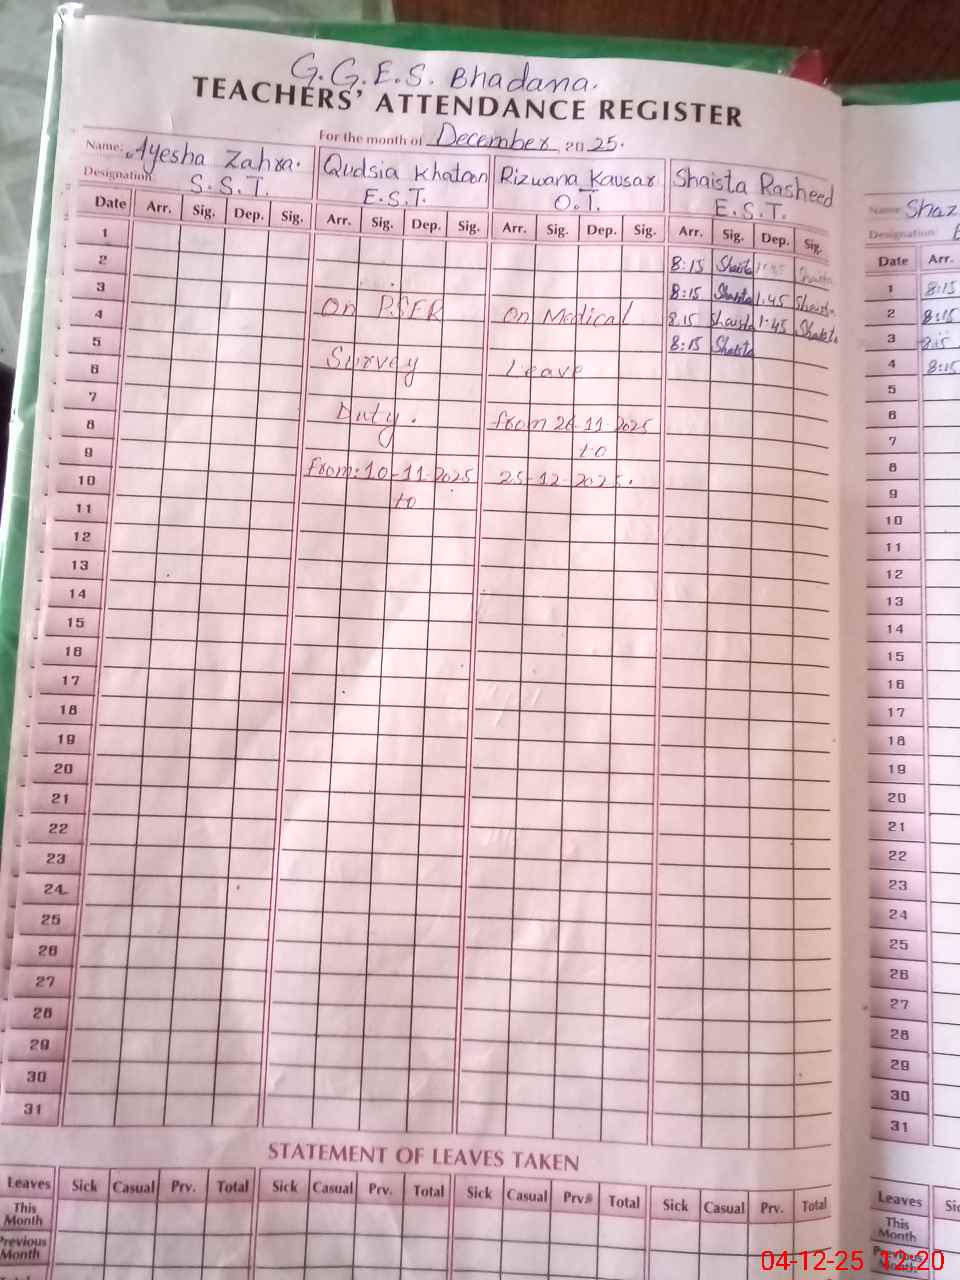 G.G.E.S. Bhadana.
TEACHERS' ATTENDANCE REGISTER
For the month of December 2025.
Name: Ayesha Zahra. Qudsia Khatoon Rizwana Kausar Shaista Rasheed
Designation: S.S.T. E.S.T. O.T. E.S.T.
Date Arr. Sig. Dep. Sig. Arr. Sig. Dep. Sig. Arr. Sig. Dep. Sig. Arr. Sig. Dep. Sig.
1 8:15 Shaista 1:45 Shaista
2 8:15 Shaista 1:45 Shaista
3 8:15 Shaista 1:45 Shaista
4 8:15 Shaista
On PSER
Survey
Duty.
from: 10-11-2025
to
On Medical
Leave
from 26 11 2025
to
25-12-2025.
5
6
7
8
9
10
11
12
13
14
15
16
17
18
19
20
21
22
23
24
25
26
27
28
29
30
31
STATEMENT OF LEAVES TAKEN
Leaves Sick Casual Prv. Total Sick Casual Prv. Total Sick Casual Prv. Total Sick Casual Prv. Total
This Month
Previous Month
Name Shaz
Designation E
Date Arr.
1 8:15
2 8:15
3 8:15
4 8:15
5
6
7
8
9
10
11
12
13
14
15
16
17
18
19
20
21
22
23
24
25
26
27
28
29
30
31
Leaves Sic
This Month
Previous Month
04-12-25 12:20